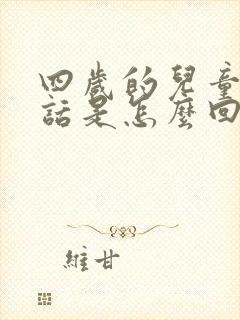 四歲的兒童
話是怎麼回
維甘